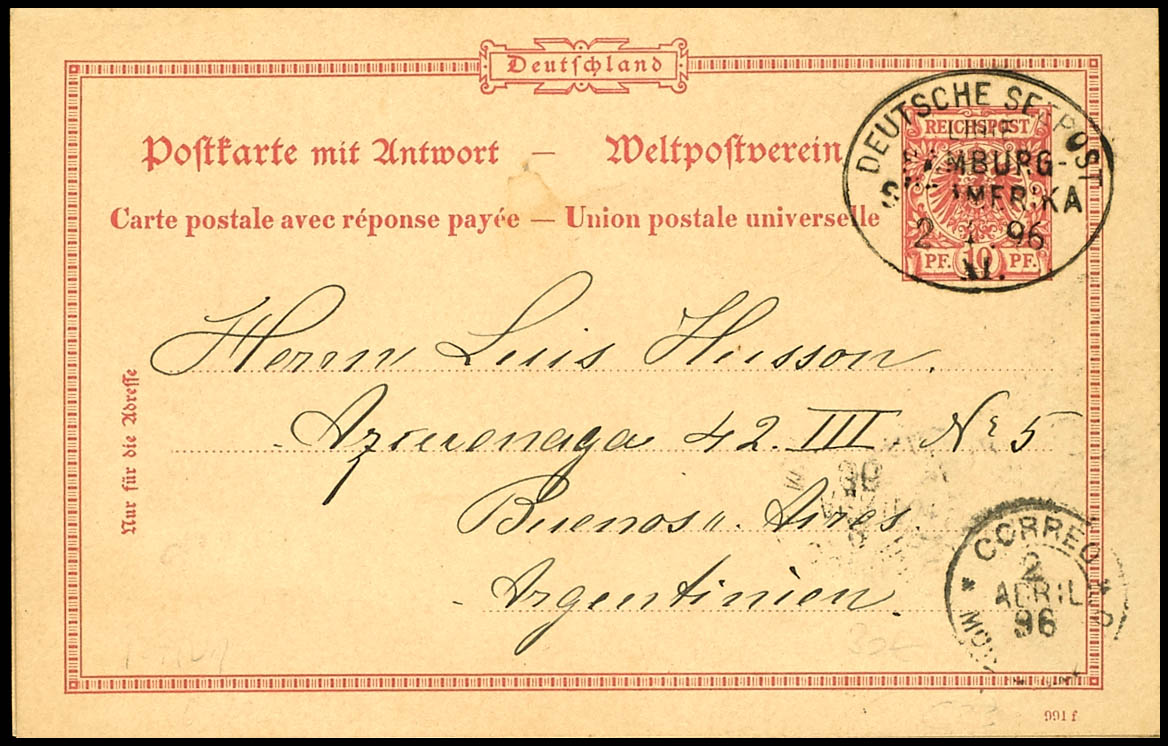 Deutschland
Postkarte mit Antwort — Weltpostverein
Carte postale avec réponse payée — Union postale universelle
DEUTSCHE SEEPOST
LINIE
HAMBURG-
SÜDAMERIKA
2 . 96
XI.
REICHSPOST
PF. 10 PF.
Nur für die Adresse
Herrn Luis Husson.
Azcuenaga 42. III Nr 5
Buenos Aires.
Argentinien.
CORREO
2
ABRIL
96
991 f